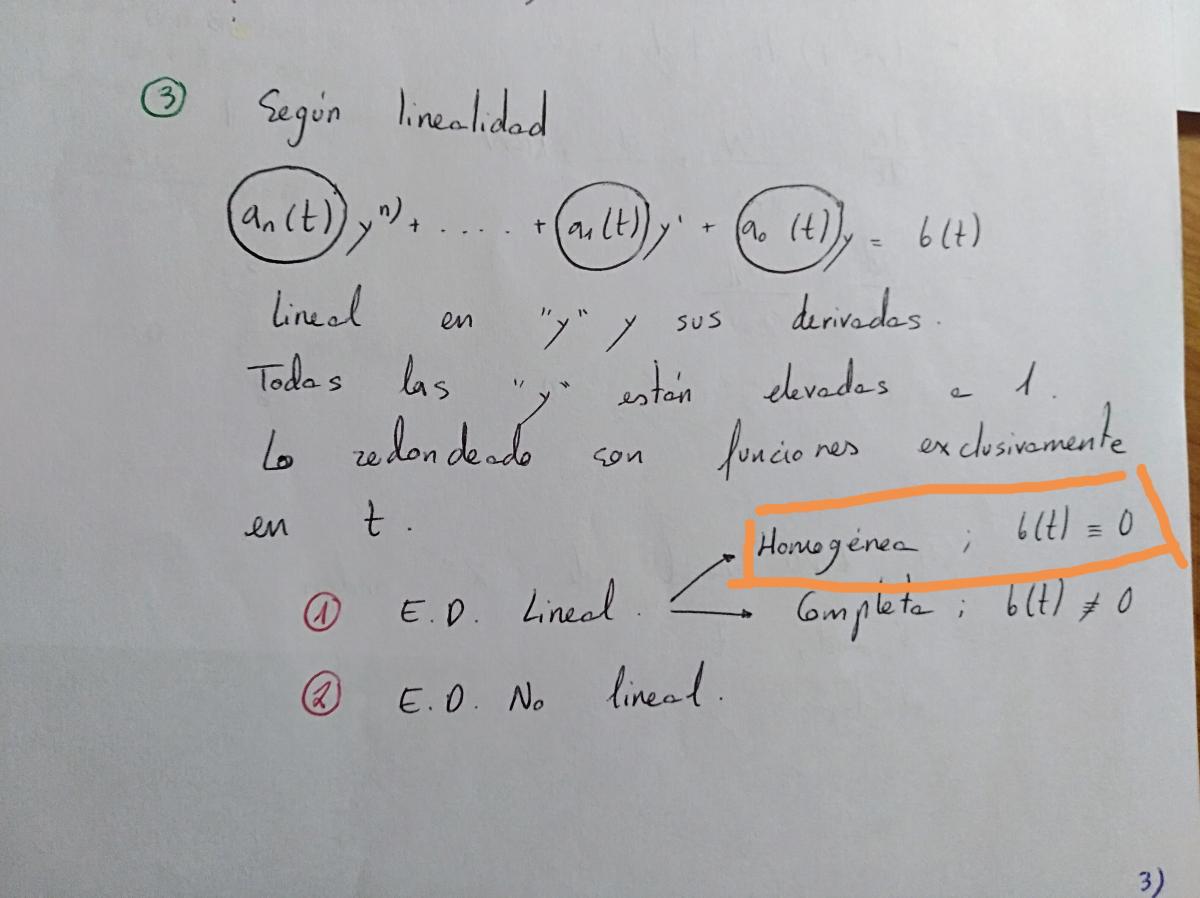 3 Según linealidad
an(t) yⁿ⁾ + ..... + a1(t) y' + a0 (t) y = b(t)
Lineal en "y" y sus derivadas.
Todas las "y" están elevadas a 1.
Lo redondeado son funciones exclusivamente
en t.
Homogénea ; b(t) ≡ 0
1 E.D. Lineal.
Completa ; b(t) ≢ 0
2 E.D. No lineal.
3)